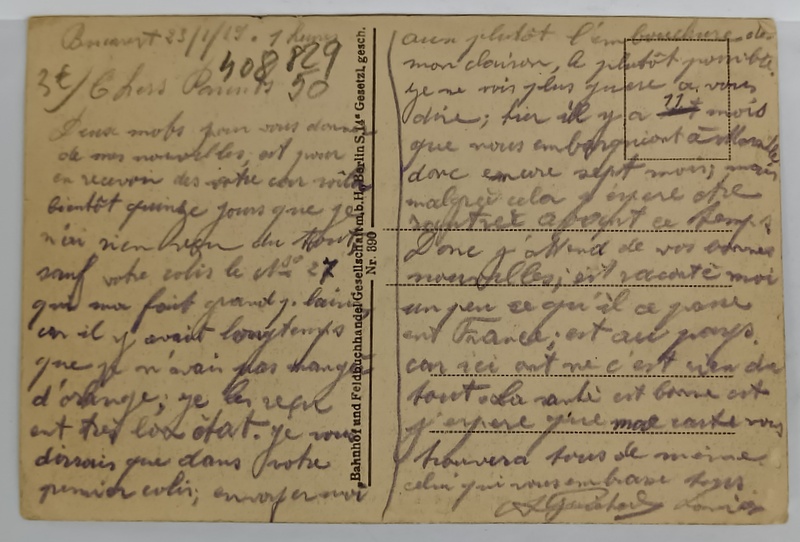 Bucarest 23/1/19. 7 heures
408 829
3€/ Chers Parents 50
Deux mots pour vous donner
de mes nouvelles, est pour
en recevoir des votre car voila
bientôt quinze jours que je
n'ai rien reçu du tout
sauf votre colis le No 27
qui ma fait grand plaisir
car il y avait longtemps
que je n'avais pas mangé
d'orange; je les reçu
ent très bon état. je vous
dirrais que dans votre
premier colis; envoyer moi
Bahnhof und Feldbuchhandel Gesellschaft m.b.H. Berlin S. 14 Gesetzl. gesch.
Nr. 390
aux plutôt l'embouchure de
mon clairon, le plutôt possible.
je ne vois plus guere a vous
dire; hier il y a 11 mois
que nous embarquiont à Marseille
donc encore sept mois; mais
malgré cela j'espere être
rentrex avant ce temps
Donc j'attend de vos bonnes
nouvelles; est raconté moi
un peu ce qu'il ce passe
ent France; est au pays.
car ici ont ne c'est rien du
tout. La santé est bonne est
j'espere que ma carte vous
trouvera tous de même
celui qui vous embrasse tous
Louis